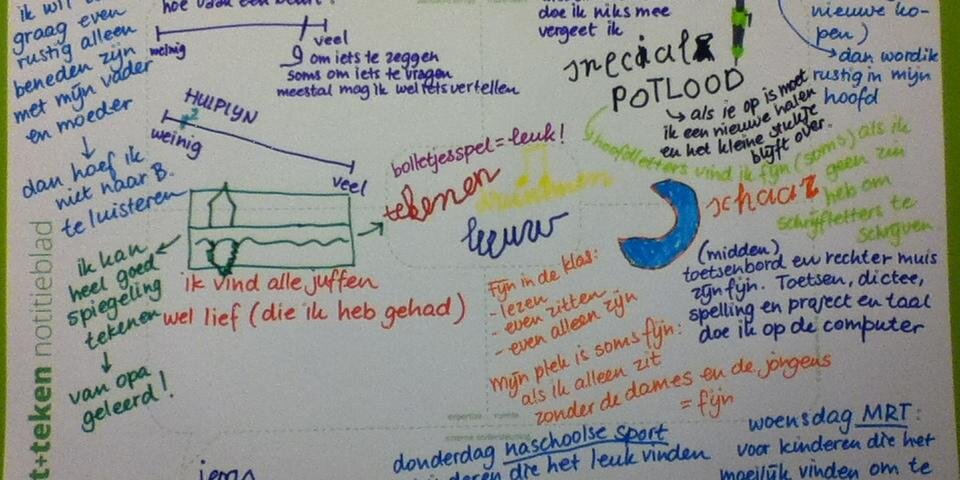 ik wil
graag even
rustig alleen
beneden zijn
met mijn vader
en moeder
↓
dan hoef ik
niet naar B.
te luisteren
hoe vaak een beurt?
weinig
veel
↳ om iets te zeggen
soms om iets te vragen
meestal mag ik wel iets vertellen
HULPLYN
weinig
veel
doe ik niks mee
vergeet ik
speciaal
POTLOOD
↳ als ie op is moet
ik een nieuwe halen
en het kleine stukje
blijft over.
nieuwe ko-
pen)
dan wordik
rustig in mijn
hoofd
hoofdletters vind ik fijn (soms) als ik
geen zin
heb om
schrijfletters te
schrijven
bolletjesspel = leuk!
tekenen
leeuw
schaar
ik kan
heel goed
spiegeling
tekenen
↓
van opa
geleerd!
ik vind alle juffen
wel lief (die ik heb gehad)
Fijn in de klas:
- lezen
- even zitten
- even alleen zijn
mijn plek is soms fijn:
als ik alleen zit
zonder de dames en de jongens
= fijn
(midden)
toetsenbord en rechter muis
zijn fijn. Toetsen, dictee,
spelling en project en taal
doe ik op de computer
t+teken notitieblad
donderdag naschoolse sport
deren die het leuk vinden
woensdag MRT:
voor kinderen die het
moeilijk vinden om te